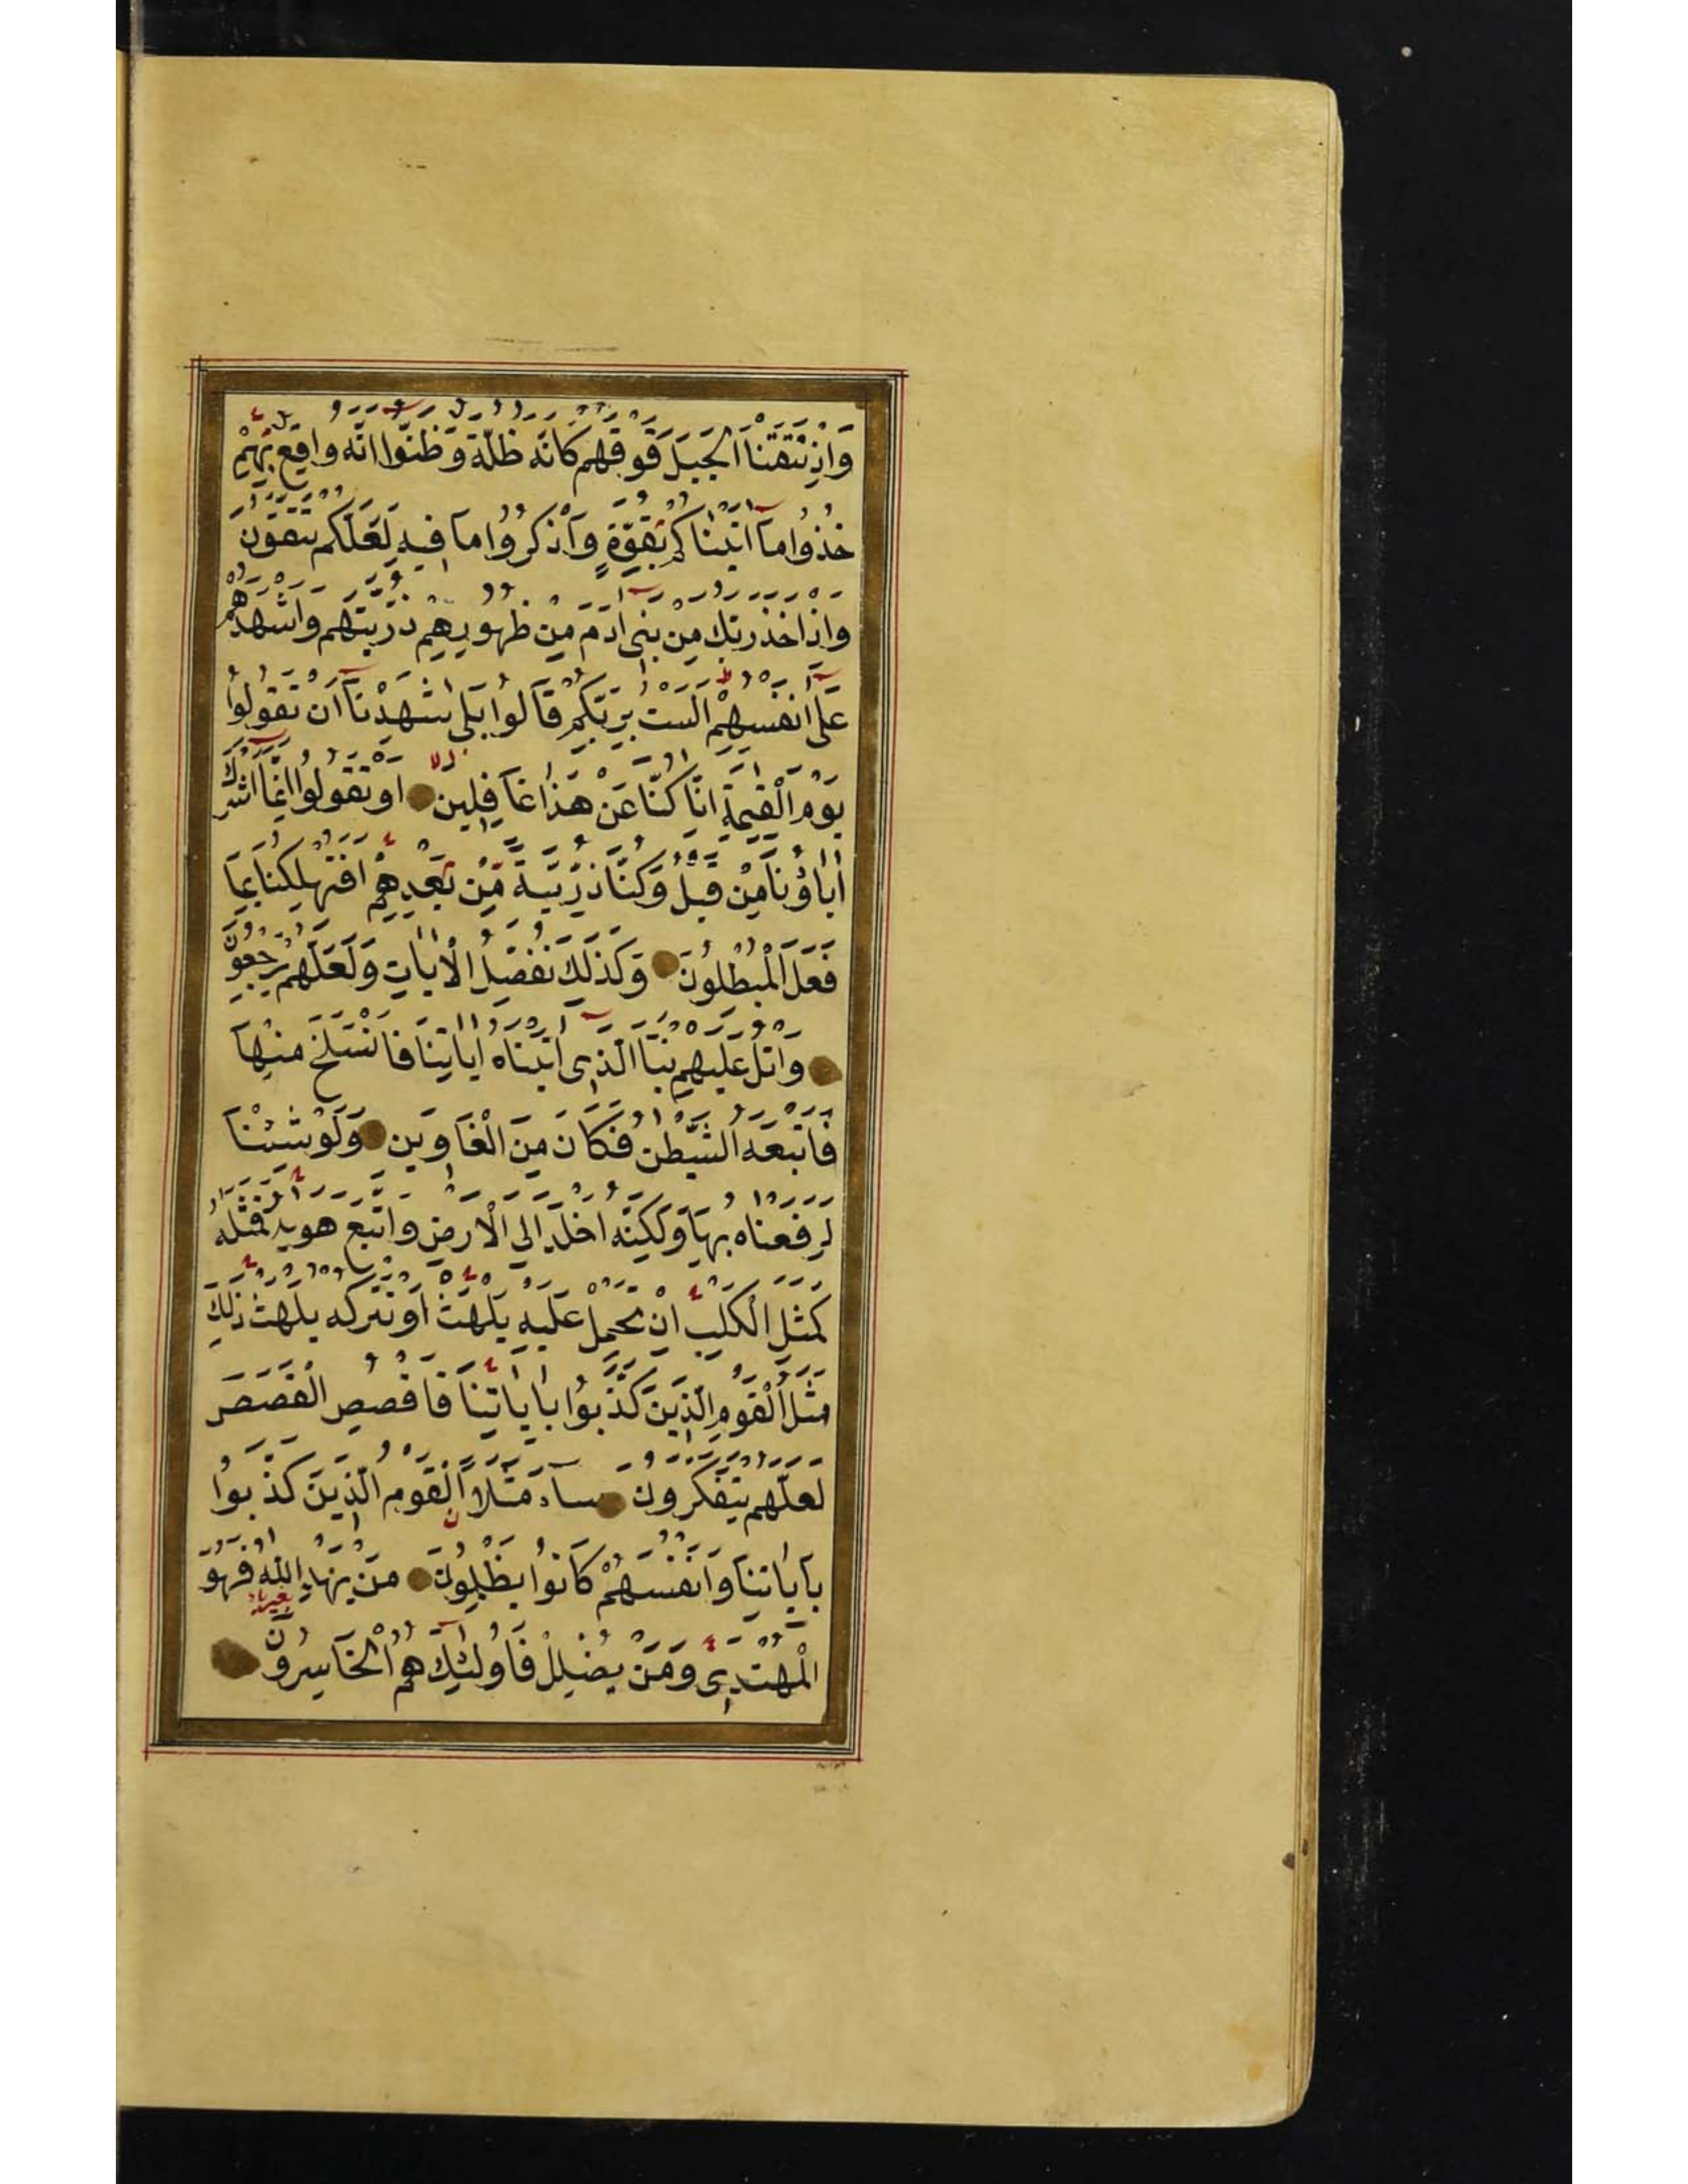 وَاِذْ نَتَقْنَا الْجَبَلَ فَوْقَهُمْ كَاَنَّهُ ظُلَّةٌ وَظَنُّوا اَنَّهُ وَاقِعٌ بِهِمْ
خُذُوا مَآ اٰتَيْنَاكُمْ بِقُوَّةٍ وَاذْكُرُوا مَا فِيهِ لَعَلَّكُمْ تَتَّقُونَ
وَاِذْ اَخَذَ رَبُّكَ مِنْ بَنِى اٰدَمَ مِنْ ظُهُورِهِمْ ذُرِّيَّتَهُمْ وَاَشْهَدَهُمْ
عَلٰٓى اَنْفُسِهِمْ اَلَسْتُ بِرَبِّكُمْ قَالُوا بَلٰى شَهِدْنَآ اَنْ تَقُولُوا
يَوْمَ الْقِيٰمَةِ اِنَّا كُنَّا عَنْ هٰذَا غَافِلِينَ اَوْ تَقُولُوا اِنَّمَآ اَشْرَكَ
اٰبَاؤُنَا مِنْ قَبْلُ وَكُنَّا ذُرِّيَّةً مِنْ بَعْدِهِمْ اَفَتُهْلِكُنَا بِمَا
فَعَلَ الْمُبْطِلُونَ وَكَذٰلِكَ نُفَصِّلُ الْاٰيَاتِ وَلَعَلَّهُمْ يَرْجِعُونَ
وَاتْلُ عَلَيْهِمْ نَبَاَ الَّذِى اٰتَيْنَاهُ اٰيَاتِنَا فَانْسَلَخَ مِنْهَا
فَاَتْبَعَهُ الشَّيْطٰنُ فَكَانَ مِنَ الْغَاوِينَ وَلَوْ شِئْنَا
لَرَفَعْنَاهُ بِهَا وَلٰكِنَّهُ اَخْلَدَ اِلَى الْاَرْضِ وَاتَّبَعَ هَوٰيهُ فَمَثَلُهُ
كَمَثَلِ الْكَلْبِ اِنْ تَحْمِلْ عَلَيْهِ يَلْهَثْ اَوْ تَتْرُكْهُ يَلْهَثْ ذٰلِكَ
مَثَلُ الْقَوْمِ الَّذِينَ كَذَّبُوا بِاٰيَاتِنَا فَاقْصُصِ الْقَصَصَ
لَعَلَّهُمْ يَتَفَكَّرُونَ سَآءَ مَثَلًا الْقَوْمُ الَّذِينَ كَذَّبُوا
بِاٰيَاتِنَا وَاَنْفُسَهُمْ كَانُوا يَظْلِمُونَ مَنْ يَهْدِ اللّٰهُ فَهُوَ
الْمُهْتَدِى وَمَنْ يُضْلِلْ فَاُولٰٓئِكَ هُمُ الْخَاسِرُونَ